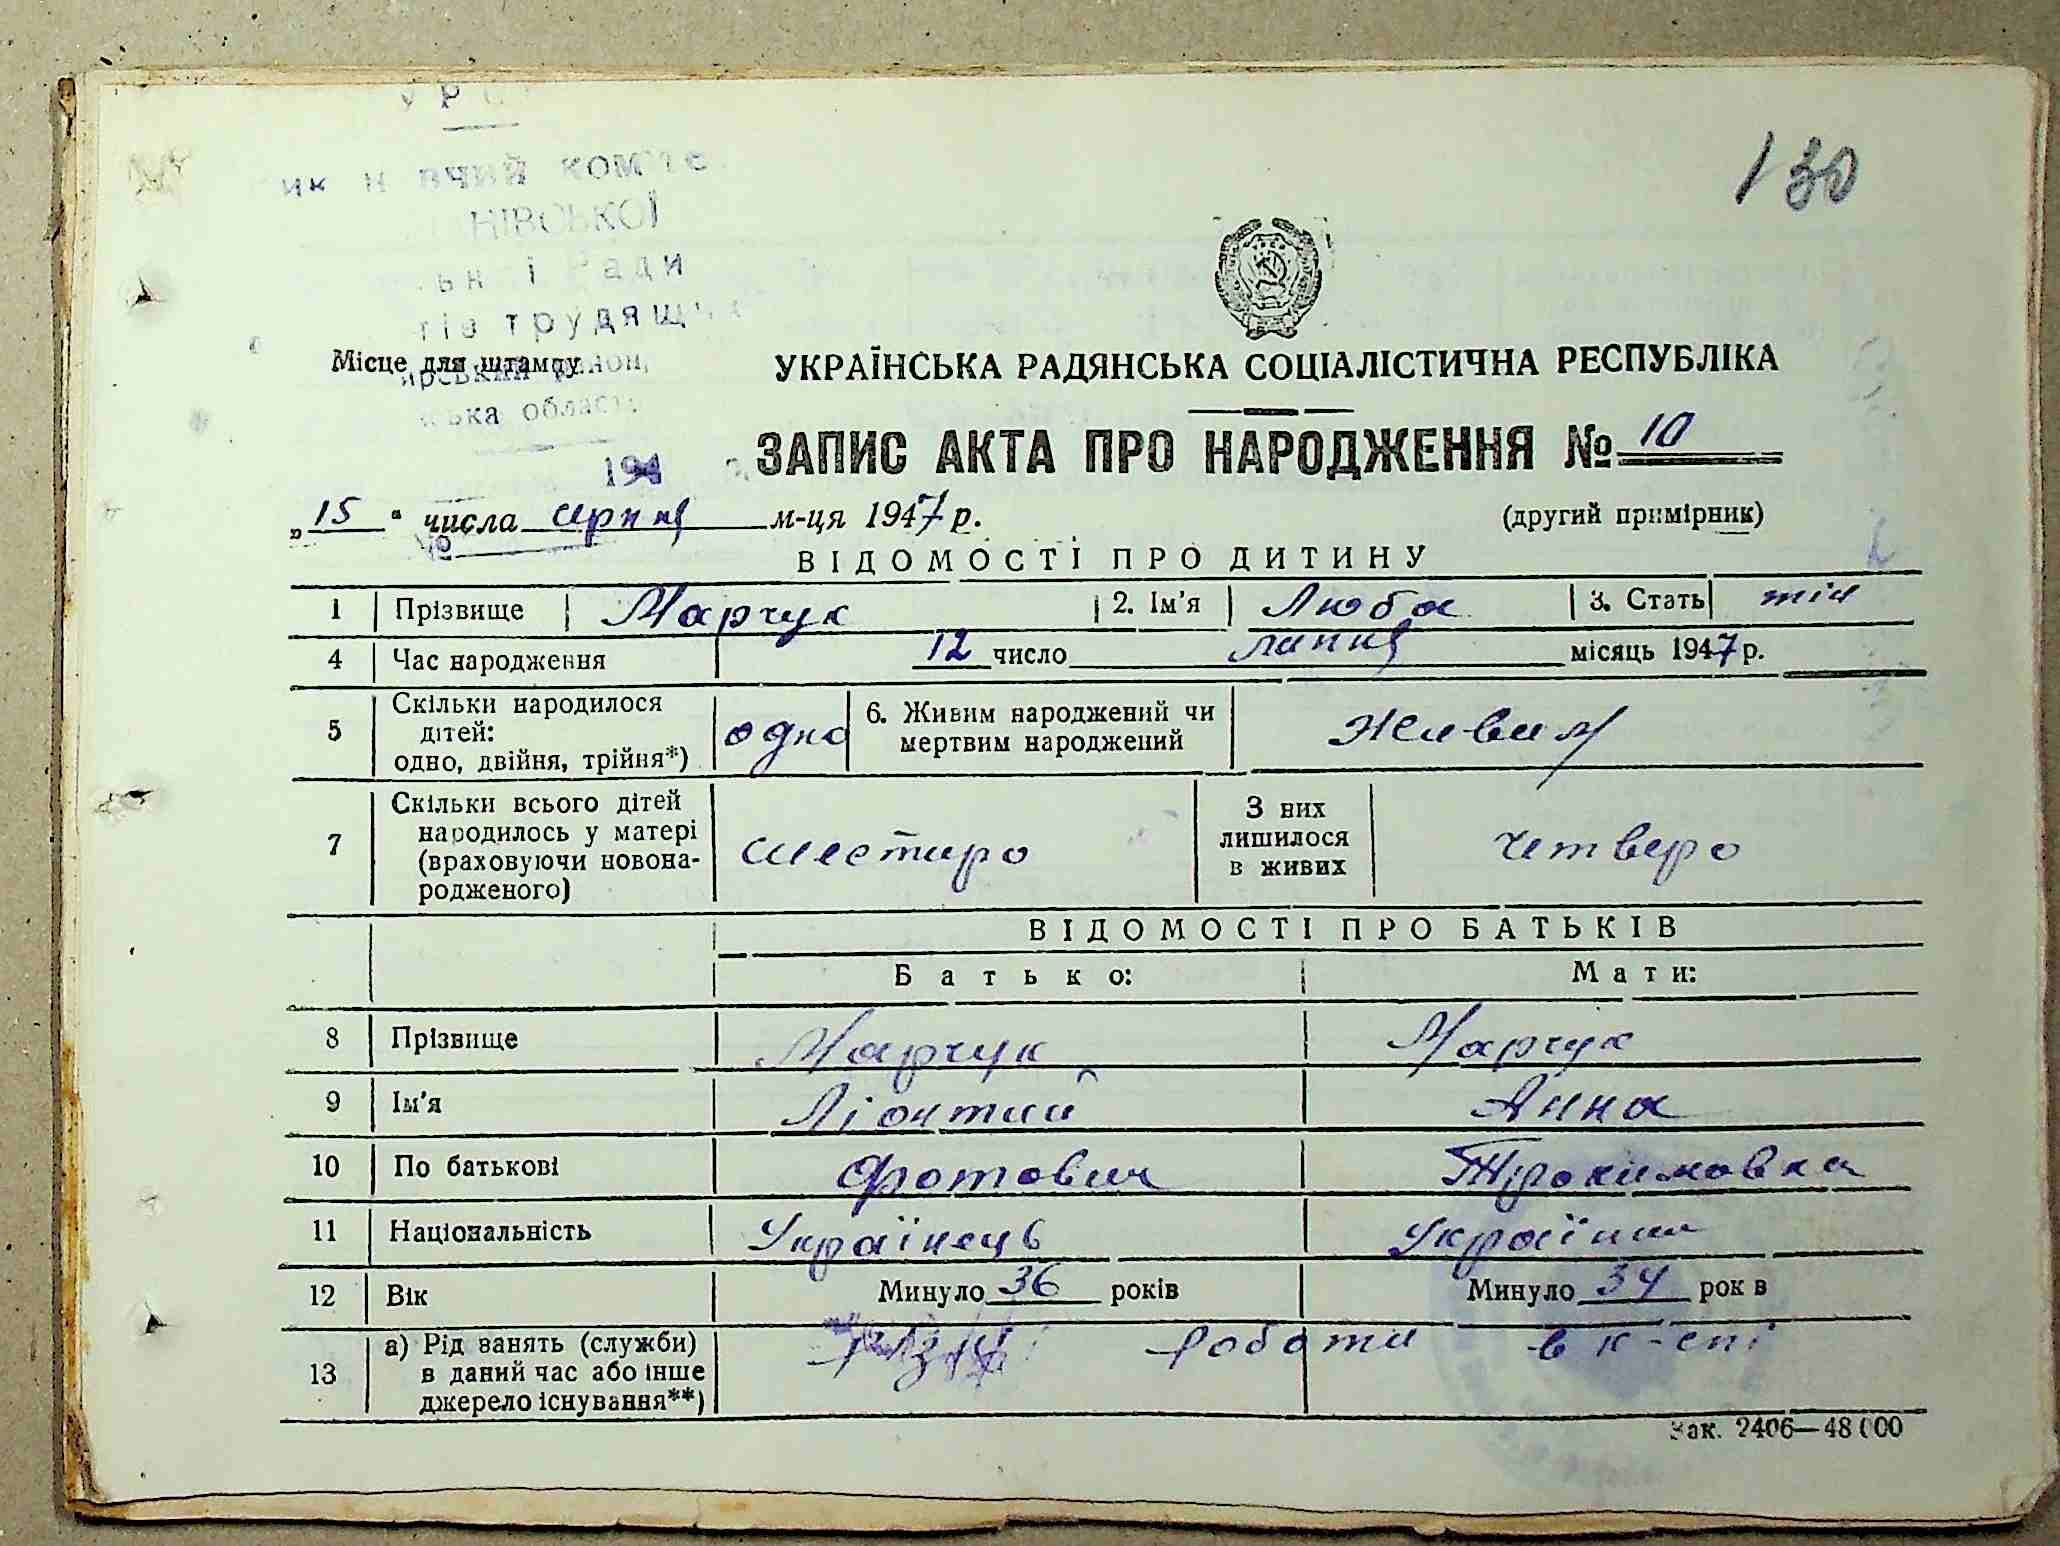 130
НІВСЬКОЇ
Ради
трудящ
Місце для штампу
УКРАЇНСЬКА РАДЯНСЬКА СОЦІАЛІСТИЧНА РЕСПУБЛІКА
ЗАПИС АКТА ПРО НАРОДЖЕННЯ № 10
194
„15“ числа серпня м-ця 1947 р. (другий примірник)
№
ВІДОМОСТІ ПРО ДИТИНУ
1 Прізвище Марчук 2. Ім'я Люба 3. Стать жін
4 Час народження 12 число липня місяць 1947 р.
5 Скільки народилося дітей: одно, двійня, трійня*) одно 6. Живим народжений чи мертвим народжений Живим
7 Скільки всього дітей народилось у матері (враховуючи новонародженого) шестиро З них лишилося в живих четверо
ВІДОМОСТІ ПРО БАТЬКІВ
Батько: Мати:
8 Прізвище Марчук Марчук
9 Ім'я Ліонтий Анна
10 По батькові Фотович Трохимовна
11 Національність Українець Українка
12 Вік Минуло 36 років Минуло 34 рок в
13 а) Рід занять (служби) в даний час або інше джерело існування**) роботи в к-спі
Зак. 2406—48000